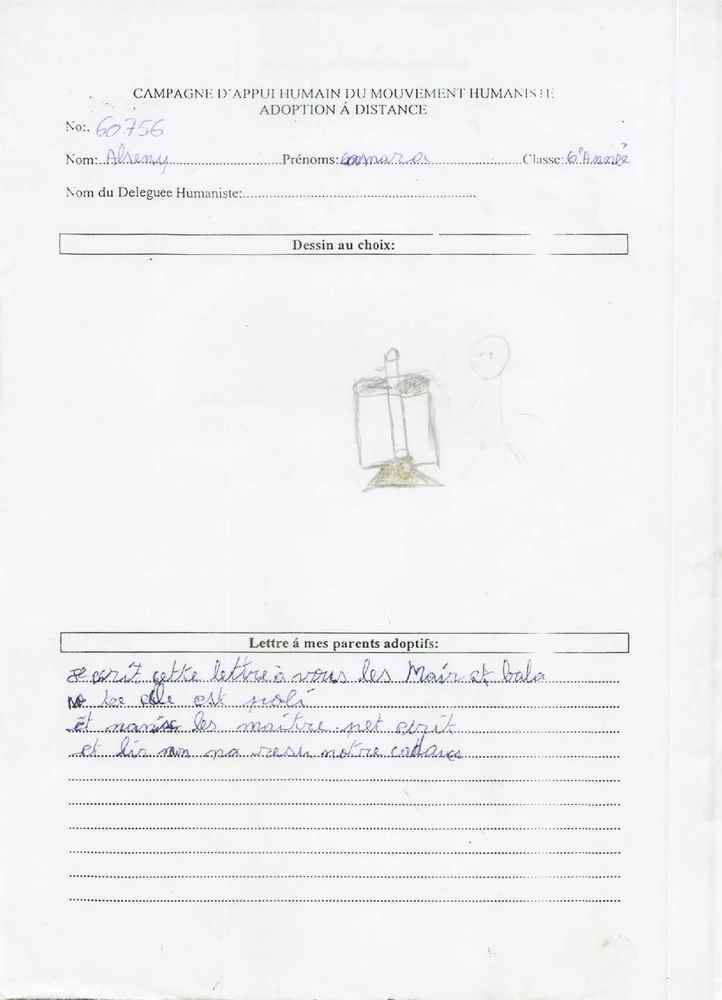 CAMPAGNE D'APPUI HUMAIN DU MOUVEMENT HUMANISTE
ADOPTION Á DISTANCE
No:. 60.756
Nom: Alseny Prénoms: Classe: 6e Année
Nom du Deleguee Humaniste:
Dessin au choix:
Lettre á mes parents adoptifs:
Je ecrit cette lettre à vous les Mair et bala
elle est noli
et les maitre pet ecrit
et lir non na resu notre cadaus